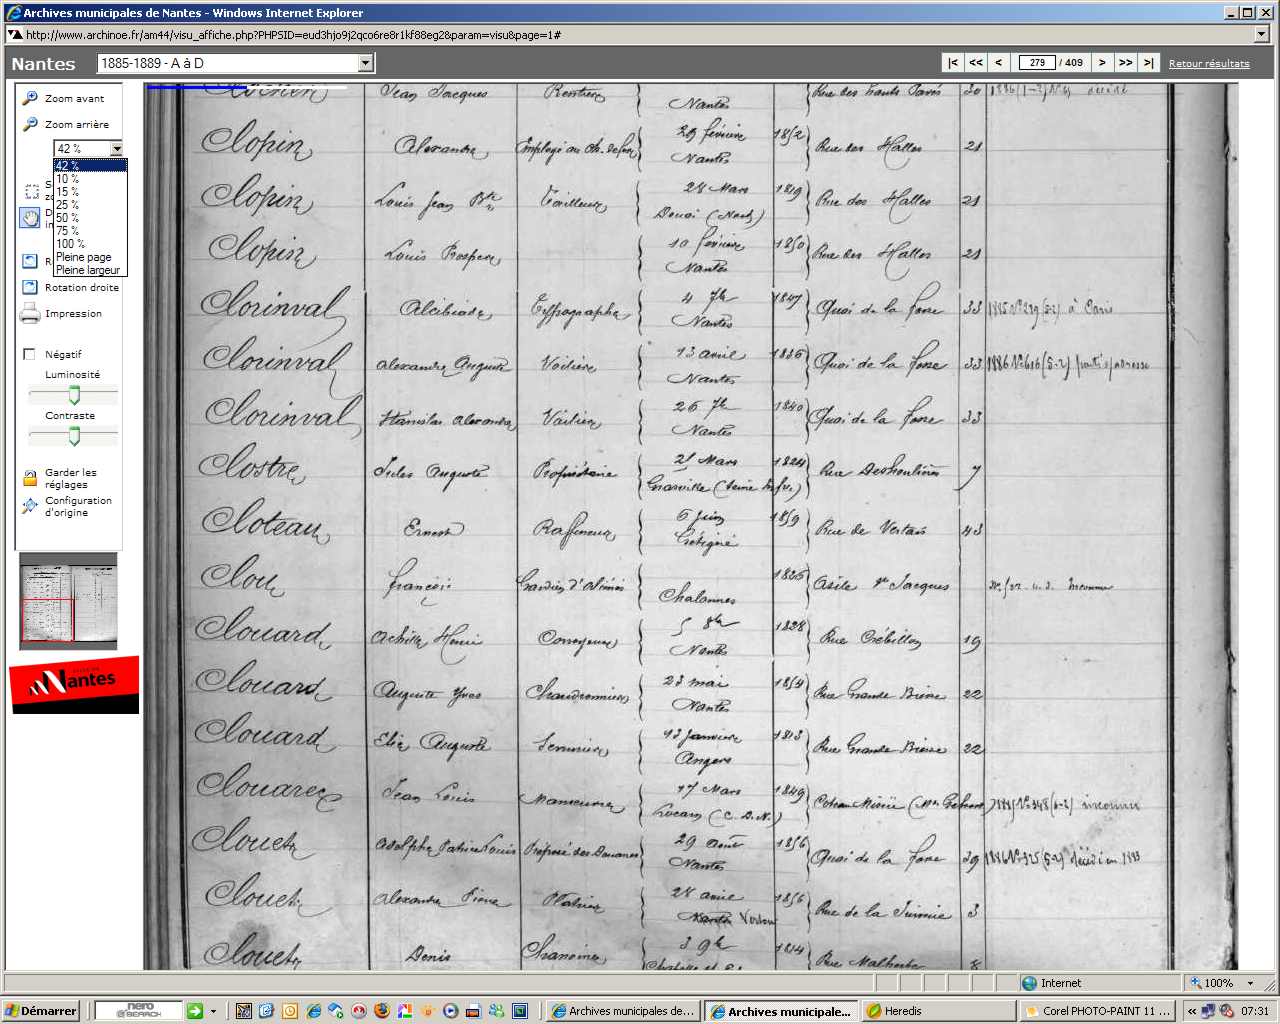 Archives municipales de Nantes - Windows Internet Explorer
http://www.archinoe.fr/am44/visu_affiche.php?PHPSID=eud3hjo9j2qco6re8r1kf88eg2&param=visu&page=1#
Nantes 1885-1889 - A à D |< << < 279 / 409 > >> >| Retour résultats
Zoom avant
Zoom arrière
42 %
42 %
10 %
15 %
25 %
50 %
75 %
100 %
Pleine page
Pleine largeur
Rotation droite
Impression
Négatif
Luminosité
Contraste
Garder les
réglages
Configuration
d'origine
Nantes
Jean Jacques Rentier Nantes Rue des Hauts Pavés 20
Clopin Alexandre Employé au Ch. de fer 29 février 1852 Nantes Rue des Halles 21
Clopin Louis Jean Bte Tailleur 28 Mars 1819 Douai (Nord) Rue des Halles 21
Clopin Louis Prosper 10 février 1850 Nantes Rue des Halles 21
Clorinval Alcibiade Typographe 4 7bre 1847 Nantes Quai de la Fosse 33 à Paris
Clorinval Alexandre Auguste Voilier 13 avril 1836 Nantes Quai de la Fosse 33
Clorinval Stanislas Alexandre Voilier 26 7bre 1840 Nantes Quai de la Fosse 33
Clostre Jules Auguste Propriétaire 21 Mars 1824 Rue Deshoulières 7
Cloteau Ernest Raffineur 6 juin 1859 Rue de Vertais 43
Clou François 1826 Chalonnes Asile St Jacques Inconnu
Clouard Achille Henri Corroyeur 5 8bre 1828 Nantes Rue Crébillon 19
Clouard Auguste Yves Chaudronnier 23 mai 1854 Nantes Rue Grande Bièsse 22
Clouard Elie Auguste Serrurier 13 Janvier 1813 Angers Rue Grande Bièsse 22
Clouarec Jean Louis Manœuvre 17 Mars 1849 (C. D. N.) inconnu
Clouet Adolphe Patrice Louis Préposé des Douanes 29 août 1856 Nantes Quai de la Fosse 39 décédé en 1883
Clouet Alexandre Pierre Platrier 28 avril 1856 Vertou Rue de la Juiverie 3
Clouet Denis Chanoine 3 9bre 1814 Rue Malherbe 8
Internet 100%
Démarrer nero SEARCH Archives municipales de... Archives municipale... Heredis Corel PHOTO-PAINT 11 ... 07:31